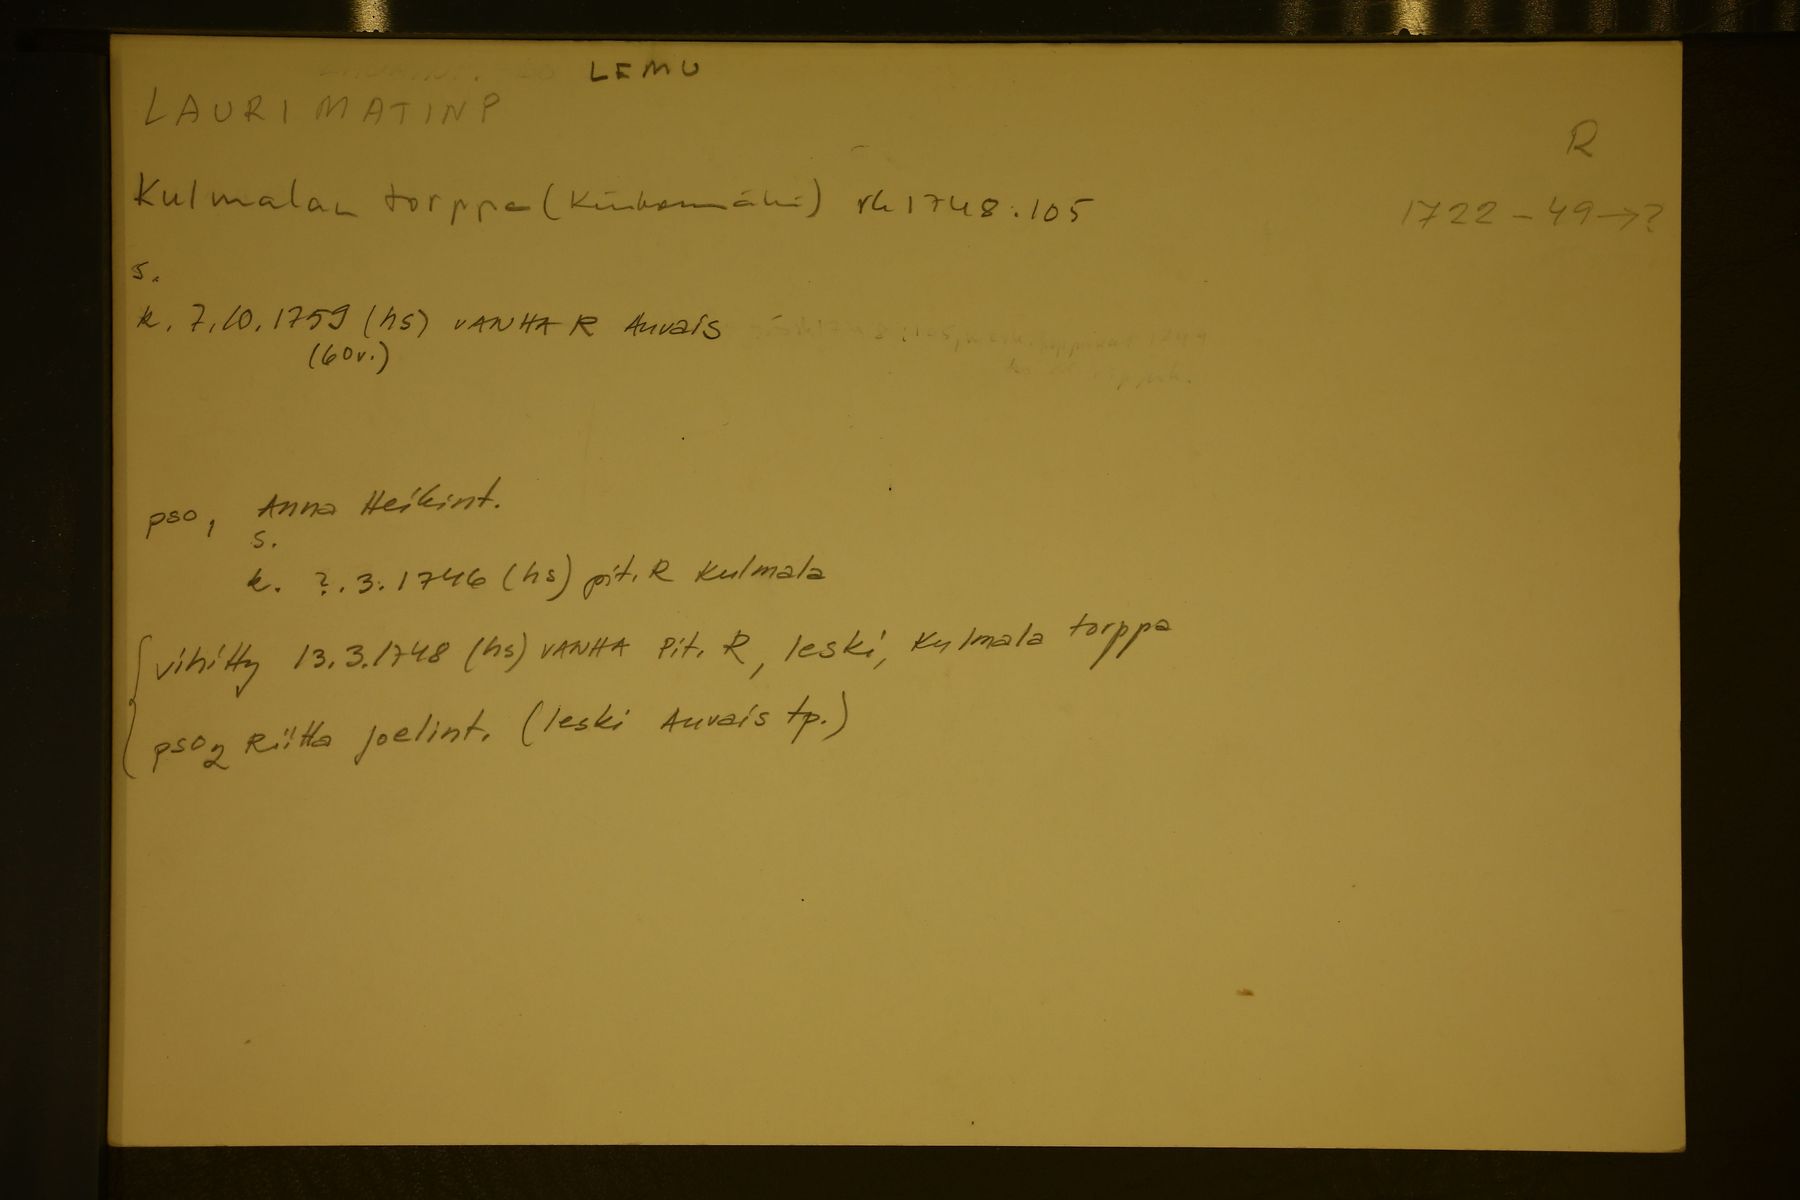 LEMU
LAURI MATINP
R
Kulmalan torppa ( ) rk 1748:105
1722-49→?
s.
k. 7.10.1759 (hs) VANHA R Auvais
(60v.)
pso1 Anna Heikint.
s.
k. ?.3.1746 (hs) pit. R Kulmala
vihitty 13.3.1748 (hs) VANHA Pit. R, leski, Kulmala torppa
pso2 Riitta Joelint. (leski Auvais tp.)